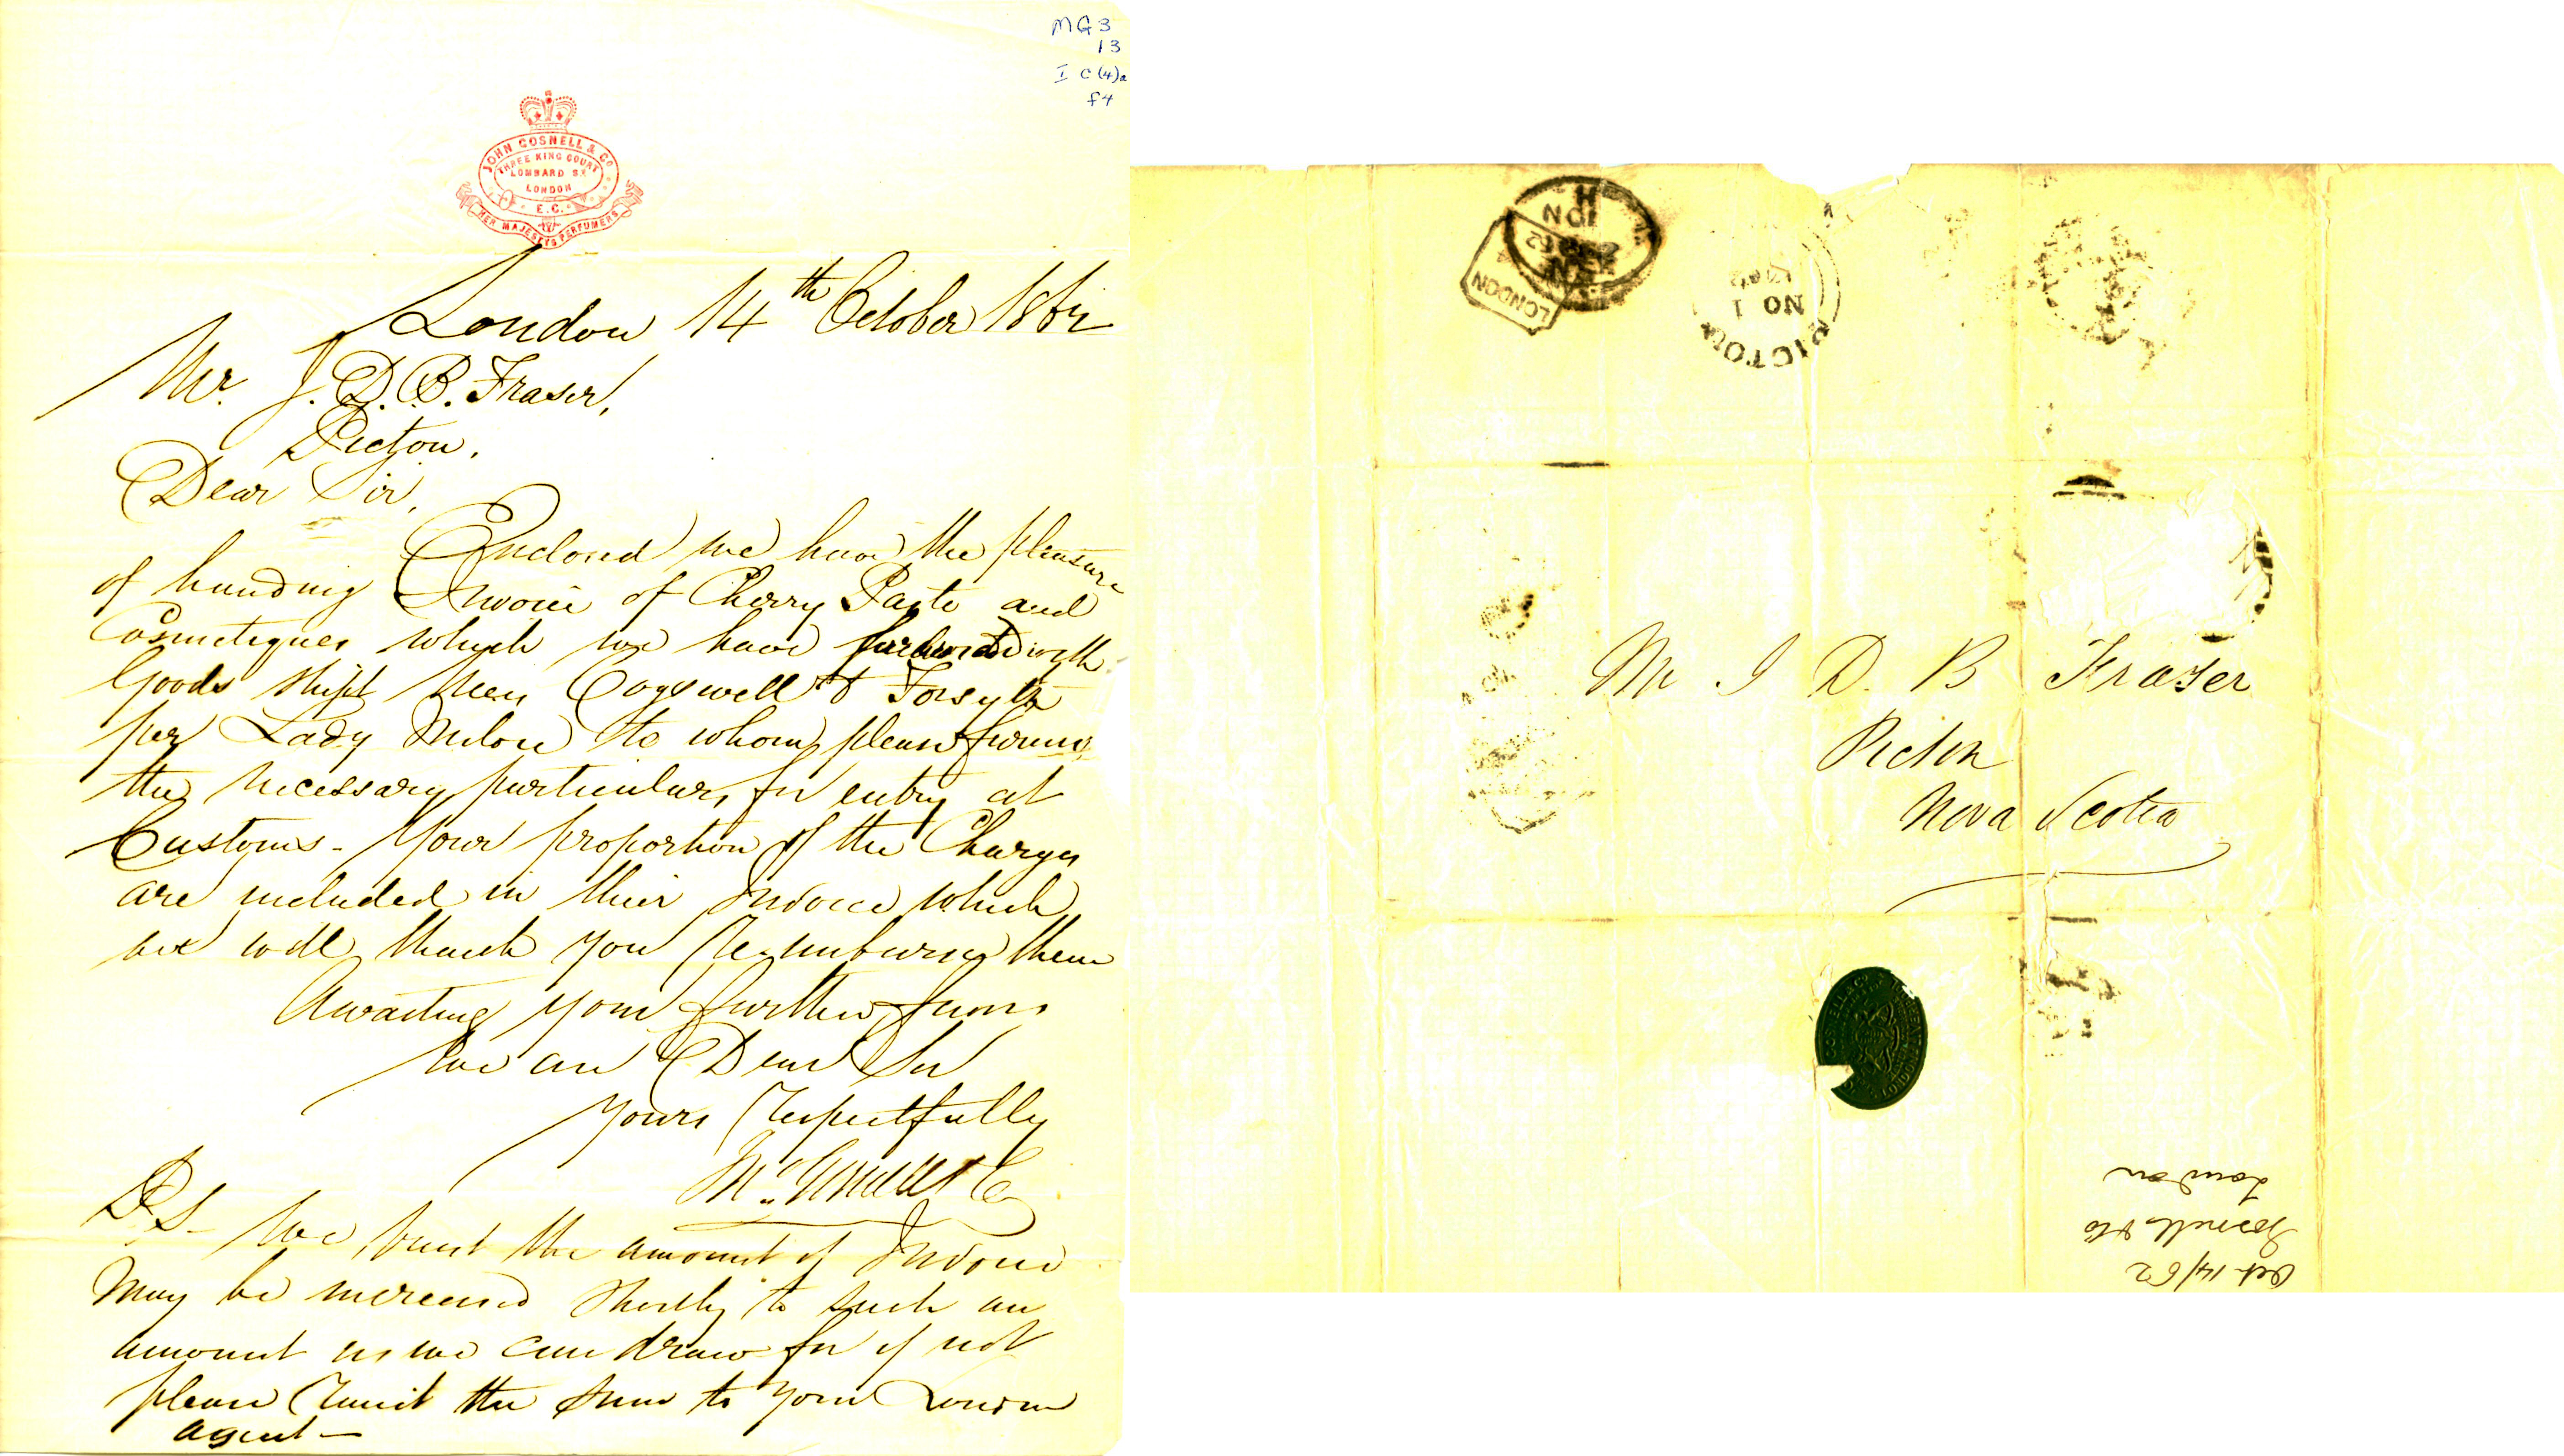 MG3
13
I C (4)a
f4
JOHN GOSNELL & CO
THREE KING COURT
LOMBARD ST
LONDON
E.C.
HER MAJESTYS PERFUMERS
London 14th October 1862
Mr. J. D. B. Fraser,
Pictou.
Dear Sir,
Enclosed we have the pleasure
of handing Invoice of Cherry Paste and
Cosmetiques which we have forward with
Goods shipt Messrs Cogswell & Forsyth
per Lady Milne to whom please furnish
the necessary particulars for entry at
Customs - Your proportion of the Charges
are included in their Invoice which
we will thank you Reimburse them
Awaiting your further favors
We are Dear Sir
Yours Respectfully
Jno. Gosnell & Co
PS - We trust the amount of Invoice
may be increased shortly to such an
amount as we can draw for if not
please remit the sum to your London
agent -
H
NO 1
LONDON
PICTOU
NO 1
1862
Mr J D. B Fraser
Pictou
Nova Scotia
Oct 14/62
Gosnell & Co
London